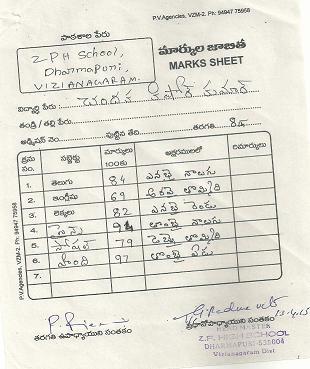 P.V.Agencies, VZM-2. Ph: 94947 75958
పాఠశాల పేరు
Z.P.H School,
Dharmapuri,
VIZIANAGARAM.
మార్కుల జాబితా
MARKS SHEET
విద్యార్థి పేరు : చందక కిషోర్ కుమార్
తండ్రి / తల్లి పేరు :
అడ్మిషన్ నెం. పుట్టిన తేది. తరగతి
క్రమ సం. సబ్జెక్టు మార్కులు 100కు అక్షరములలో రిమార్కులు
1. తెలుగు 84 ఎనభై నాలుగు
2. ఇంగ్లీషు 69 అరవై తొమ్మిది
3. లెక్కలు 82 ఎనభై రెండు
4. సైన్సు 94 తొంభై నాలుగు
5. సోషల్ 79 డెబ్బై తొమ్మిది
6. హింది 97 తొంభై ఏడు
7.
P.V.Agencies, VZM-2. Ph: 94947 75958
తరగతి ఉపాధ్యాయుని సంతకం ప్రధానోపాధ్యాయుని సంతకం
HEAD MASTER
Z.P. HIGH SCHOOL
DHARMAPURI-535004
Vizianagaram Dist